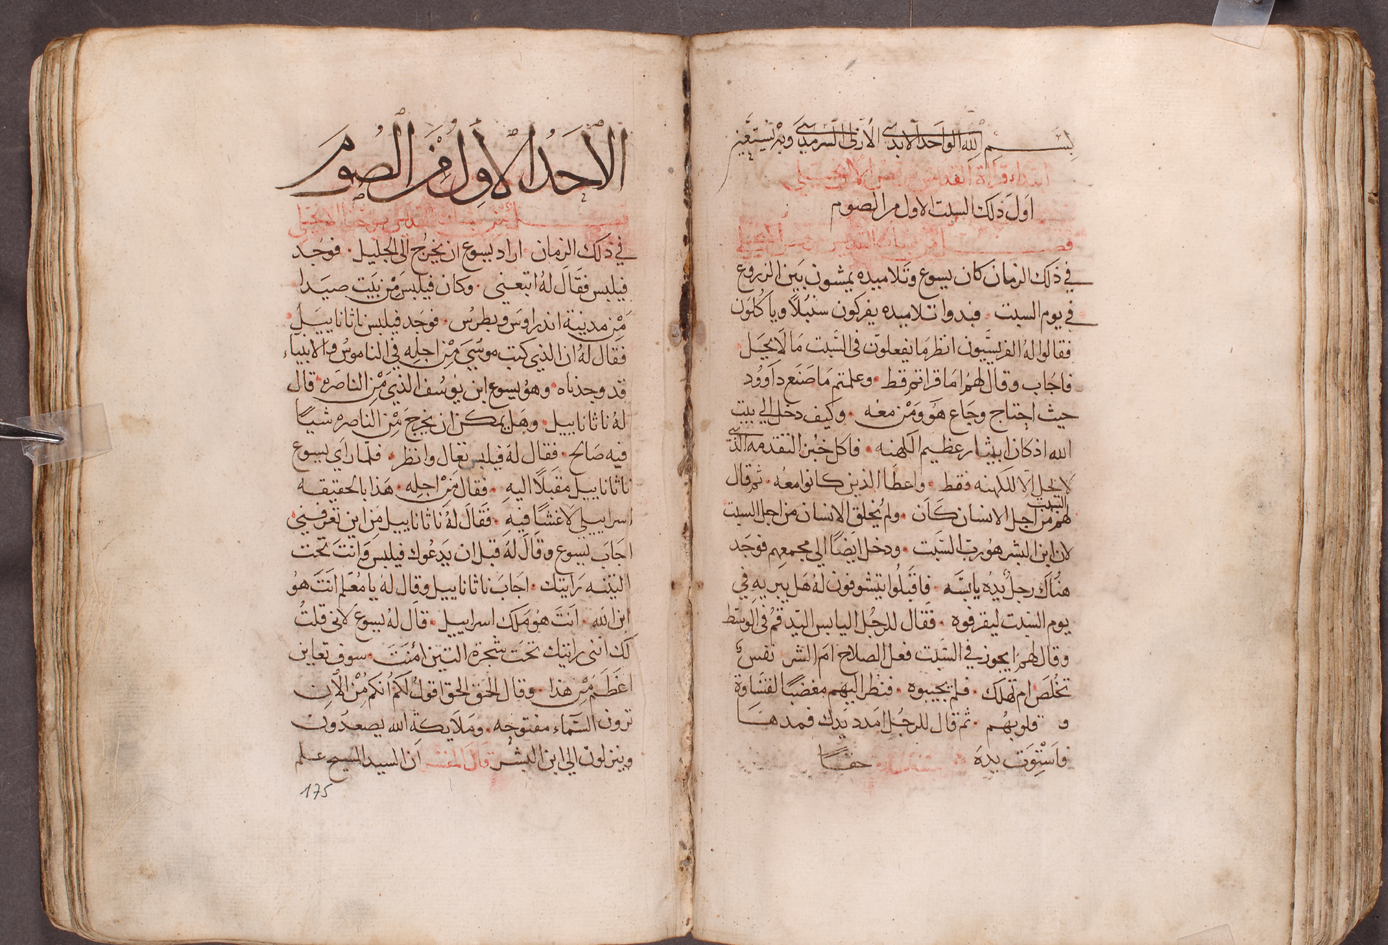 بسم الله الواحد الابدي الازلي السرمدي وبه نستعين
ابتداء قراة
اول ذلك السبت الاول من الصوم
فصل من بشارة القديس
في ذلك الزمان كان يسوع وتلاميذه يمشون بين الزروع
في يوم السبت • فبدوا تلاميذه يفركون سنبلًا وياكلون
فقالوا له الفريسيون انظر ما يفعلون في السَّبت مَا لَا يحِل
فاجاب وقال لهم اما قراتم قط • وعلمتم مَا صَنَع داوُود
حيث احتاج وجَاع هَو ومَنْ معه • وكيف دخل الي بيت
الله اذ كان ابيثار عظيم الكهنه • فاكل خبز التقدمه الذي
لا يحل الا للكهنه فقط • واعطا الذين كانوا معه • ثم قال
لهم من اجل الانسان كَانَ السبت • ولم يُخلق الانسان من اجل السبت
لان ابن البشر هو رب السَّبت • ودخل ايضًا الي مجمعهم فوجَد
هنُاك رجل يده يابسَه • فاقبلُوا يتشوفون لهُ هَل يبريه في
يوم السَبت ليقرفوه • فقال للرجُل اليابس اليَد قمُ في الوسَط
وقال لهم ايجوز في السَّبت فعل الصلاح ام الشر • نفس
تخلصَ ام تهلك • فلم يجيبوه • فنظر اليهم مغضبًا لقسَاوة
قلوبهم • ثم قال للرجُل امدد يدك فمدهَا
فاَستْوَت يده حقًا
الاَحَدُ الاَولُ مِنَ الصُومِ
فصل من بشارة القديس يوحنا الانجيلي
في ذلك الزمان • اراد يسوع ان يخرجُ الي الجليل • فوجد
فيلبس فقَال لهُ اتبعني • وكان فيلبسَ مِنْ بيَت صيَدا
مِنْ مدينة اندراوس وبطرس • فوجد فيلبس ناثاناييَل
فقال لهُ ان الذي كتب موسَي مِنْ اجله في الناموُس والانبياء
قد وجدناه • وهو يسوع ابن يوُسُف الذي مِنْ الناصَره • قال
لهُ ناثاناييل • وهَل يمكن ان يخرج مِنْ الناصره شيًا
فيه صَالح • فقال لهُ فيلبس تعال وانظر • فلما راي يسوع
ناثاناييل مقبَلًا اليهِ • فقال مِنْ اجله • هَذا بالحقيقه
اسراييلي لاغشًا فيه • فقَالَ لهُ ناثاناييل من اين تعَرفني
اجَابَ يسوع وقَال لهُ قبل ان يدَعُوك فيلبسَ وانتَ تحَت
التيَنه رَايتك • اجابَ ناثاناييل وقال له يا معُلم انتَ هوُ
ابن الله • انتَ هوُ مَلك اسراييل • قال لهُ يسوع لاني قلتُ
لك انني رايتك تحَت شجَرة التين امنَت • سوف تعاين
اعظَم مِن هذا • وقال الحق الحق اقولُ لكُم انكم مِنْ الان
ترون السَّمآء مفتوحه • ومَلايكة الله يصعدون
وينزلون الي ابن البشر قال المفسر ان السيد المسيح علم
175